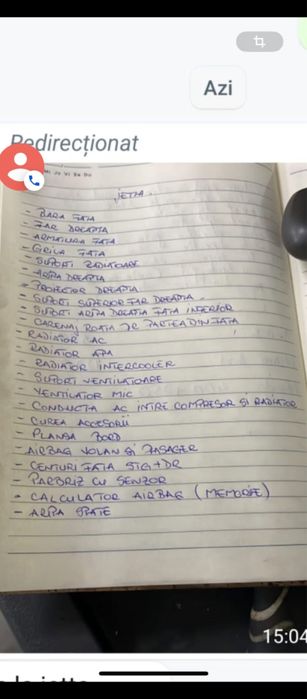 Azi
Redirecționat
JETTA.
- BARA FATA
- FAR DREAPTA
- ARMATURA FATA
- GRILA FATA
- SUPORT RADIATOARE
- ARIPA DREAPTA
- PROIECTOR DREAPTA
- SUPORT SUPERIOR FAR DREAPTA.
- SUPORT ARIPA DREAPTA FATA INFERIOR
- CARENAJ ROATA DR PARTEA DIN FATA
- RADIATOR AC
RADIATOR APA
- RADIATOR INTERCOOLER
- SUPORT VENTILATOARE
- VENTILATOR MIC
- CONDUCTA AC INTRE COMPRESOR SI RADIATOR
- CUREA ACCESORII
- PLANSA BORD
- AIRBAG VOLAN SI PASAGER
- CENTURI FATA STG+DR
- PARBRIZ CU SENZOR
- CALCULATOR AIRBAG (MEMORIE)
- ARIPA SPATE
15:04